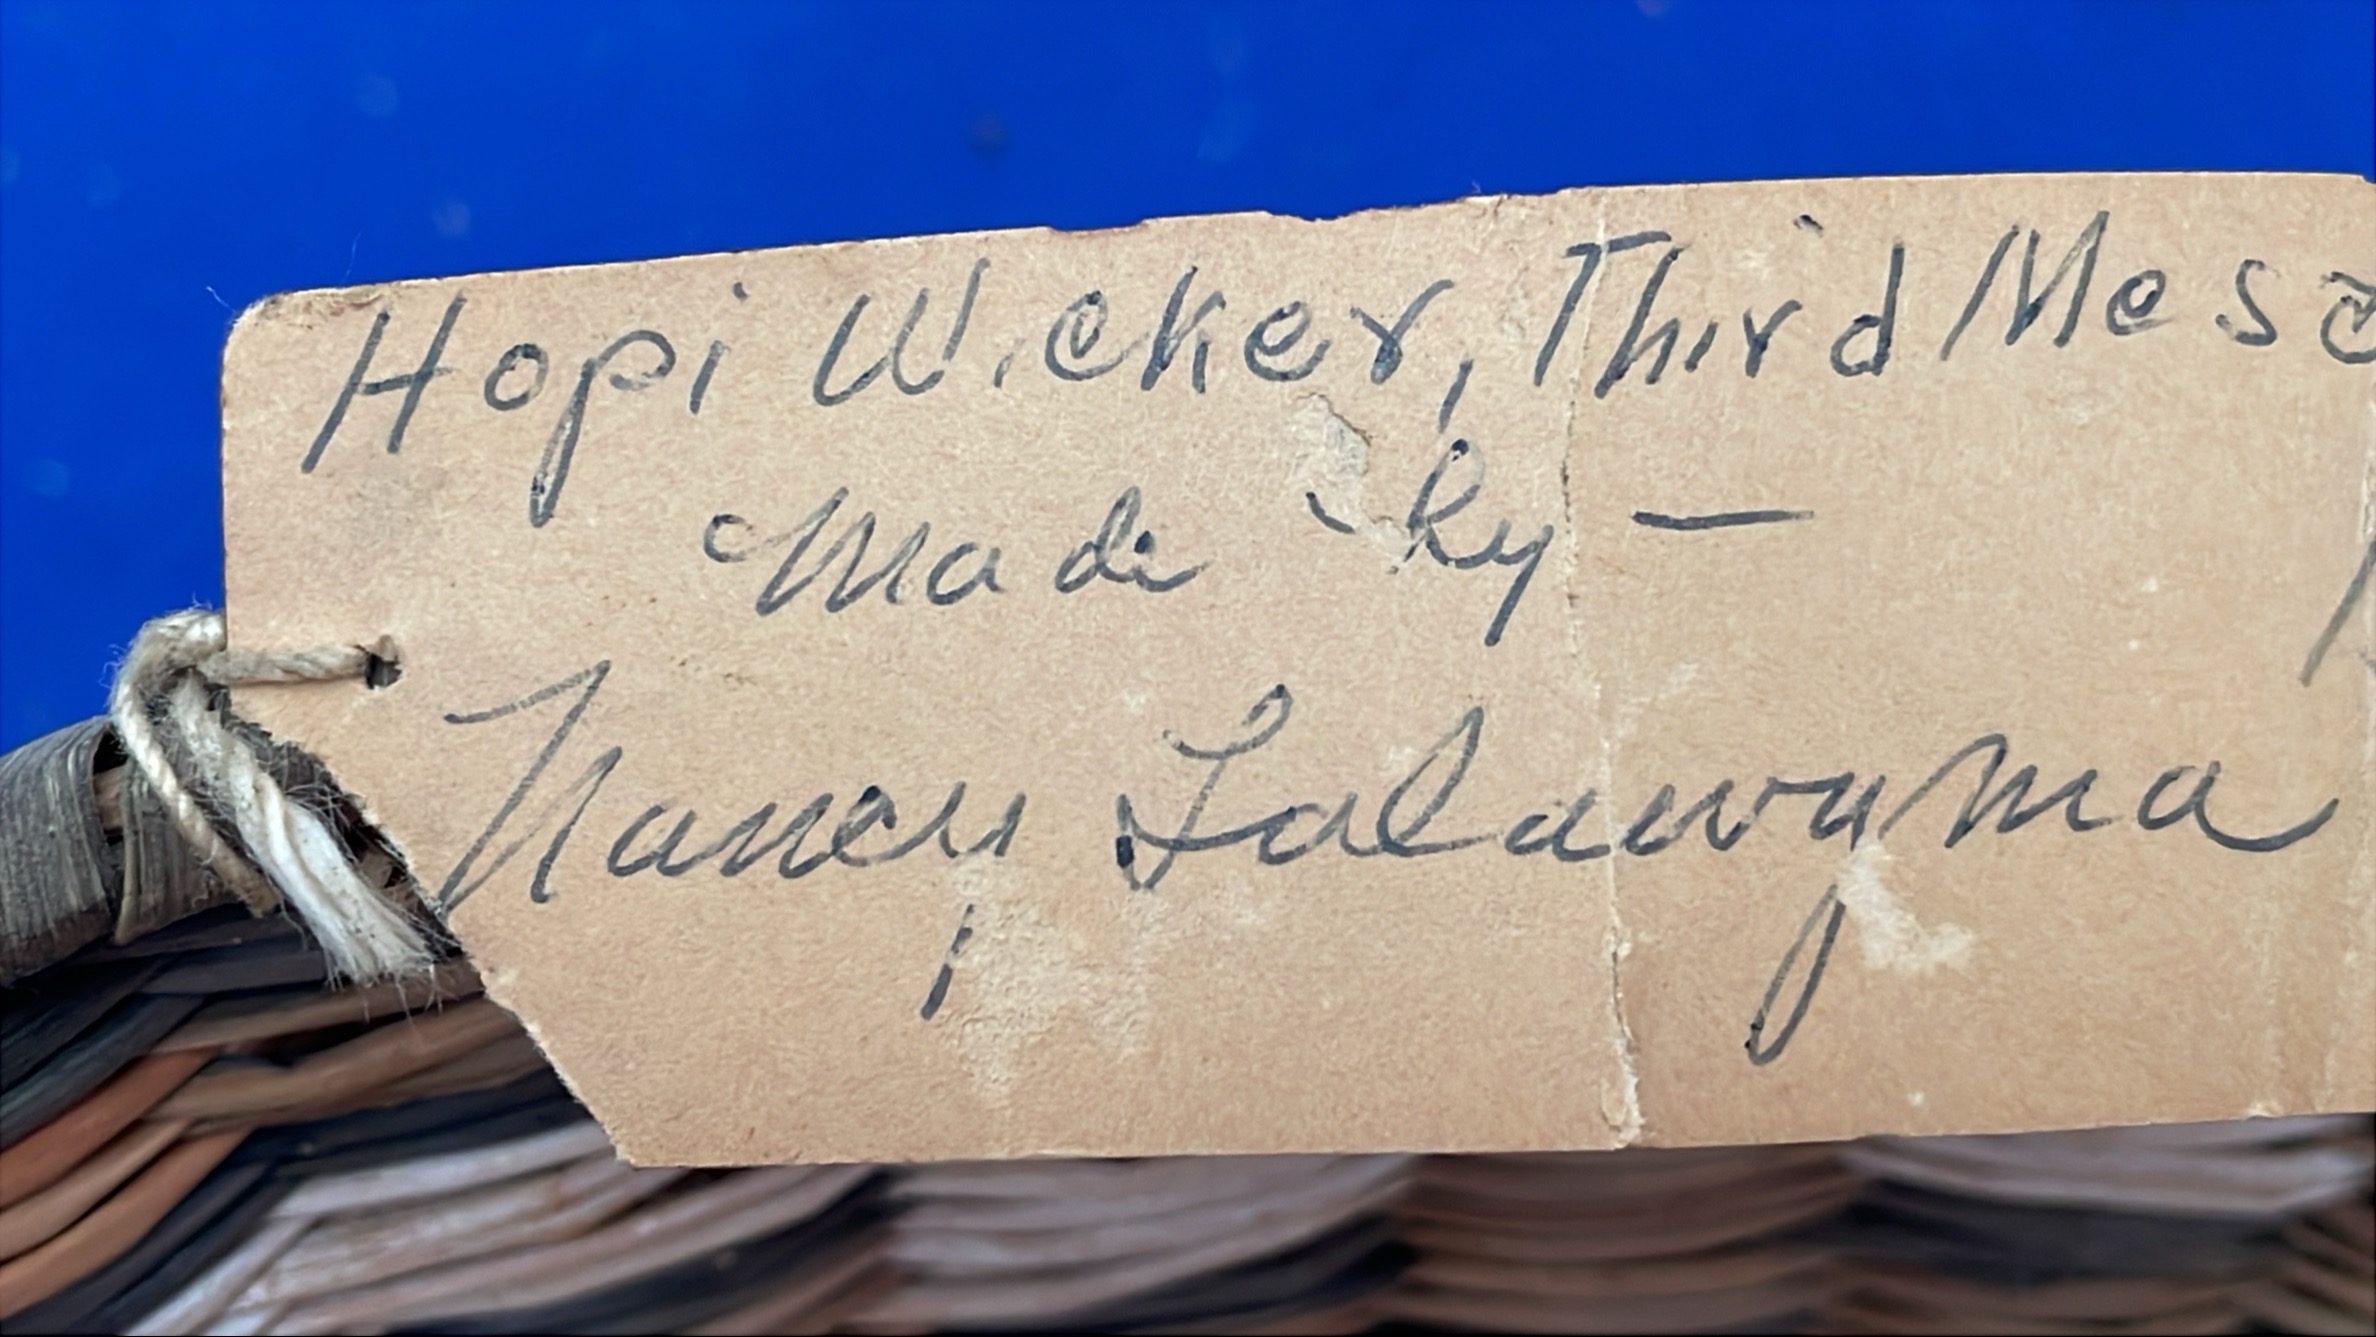 Hopi Wicker, Third Mesa
Made by —
Nancy Lalawyma